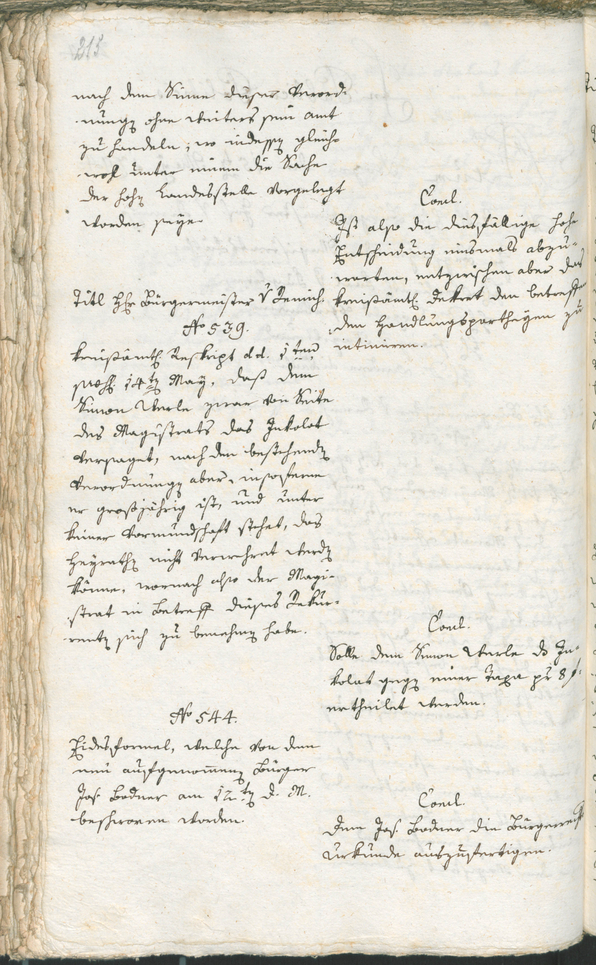 215
nach dem Sinne dieser Verord-
nungen ohne weiters sein Amt
zu handeln; wo indessen gleich-
wol unter einem die Sache
der hohen Landesstelle vorgelegt
worden seye.
Concl.
Ist also die diesfällige hohe
Entscheidung einsmals abzu-
warten, entzwischen aber das
kreisämtl. Dekret den betreffen-
den Handlungspartheyen zu
intimiren.
Titl Hr. Bürgermeister v
No 539.
kreisämtl. Reskript dd. 1ten
14ten May, daß dem
Simon Merle zwar von Seite
des Magistrats das Inkolat
versaget, nach den bestehenden
Verordnungen aber, insoferne
er großjährig ist, und unter
keiner Vormundschaft stehet, das
Heyrathen nicht verwehret werden
könne, wornach also der Magi-
strat in Betreff dieses Rekur-
renten sich zu benehmen habe.
Concl.
Solle dem Simon Merle das In-
kolat gegen einer Taxa pr 8 f.
ertheilet werden.
No 544.
Eidesformel, welche von dem
neu aufgenommenen Bürger
Jos. Bodner am 12ten d. M.
beschworen worden.
Concl.
Dem Jos. Bodner die Bürgerrechts
Urkunde auszufertigen.